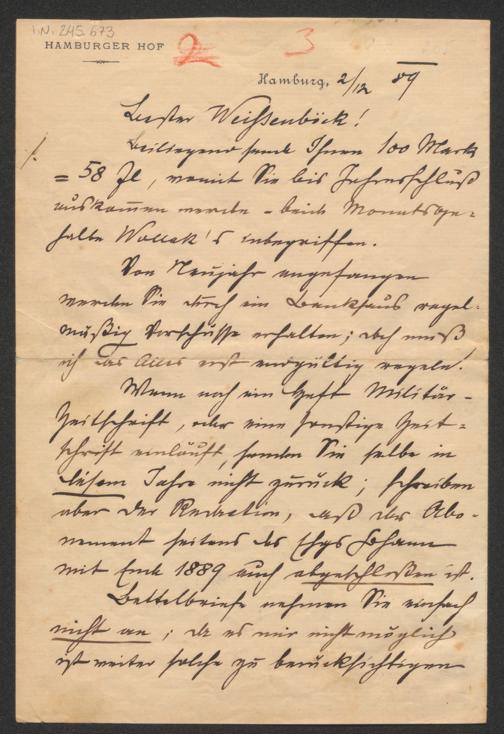 I.N. 245.673
HAMBURGER HOF
2
3
Hamburg, 2/12 89
Bester Weißenböck!
Beiliegend sende Ihnen 100 Mark
= 58 Fl, womit Sie bis Jahresschluß
auskommen werden – beide Monatsge-
halte Wollak's inbegriffen.
Von Neujahr angefangen
werden Sie durch ein Bankhaus regel-
mäßig Vorschüsse erhalten; doch muß
ich das Alles erst endgültig regeln!
Wenn noch ein Heft Militär-
Zeitschrift, oder eine sonstige Zeit-
schrift einläuft, senden Sie selbe in
diesem Jahre nicht zurück; schreiben
aber der Redaction, daß das Abo-
nement seitens des Ehgs Johann
mit Ende 1889 auch abgeschloßen ist.
Bettelbriefe nehmen Sie einfach
nicht an; da es mir nicht möglich
ist weiter solche zu berücksichtigen